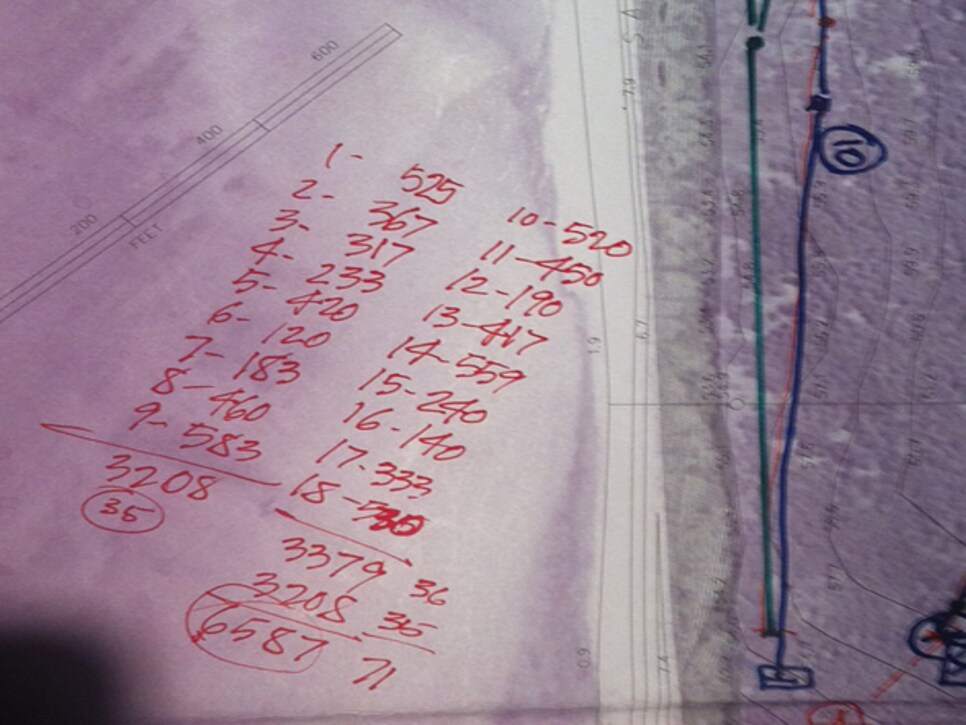 600
400
200
FEET
1- 525
2- 367
3- 317
4- 233
5- 420
6- 120
7- 183
8- 460
9- 583
3208
35
10-520
11-450
12-190
13-417
14-559
15-240
16-140
17-333
18-530
3379 36
3208 35
6587 71
10
S A
7.9
6.7
1.9
0.9
7.4